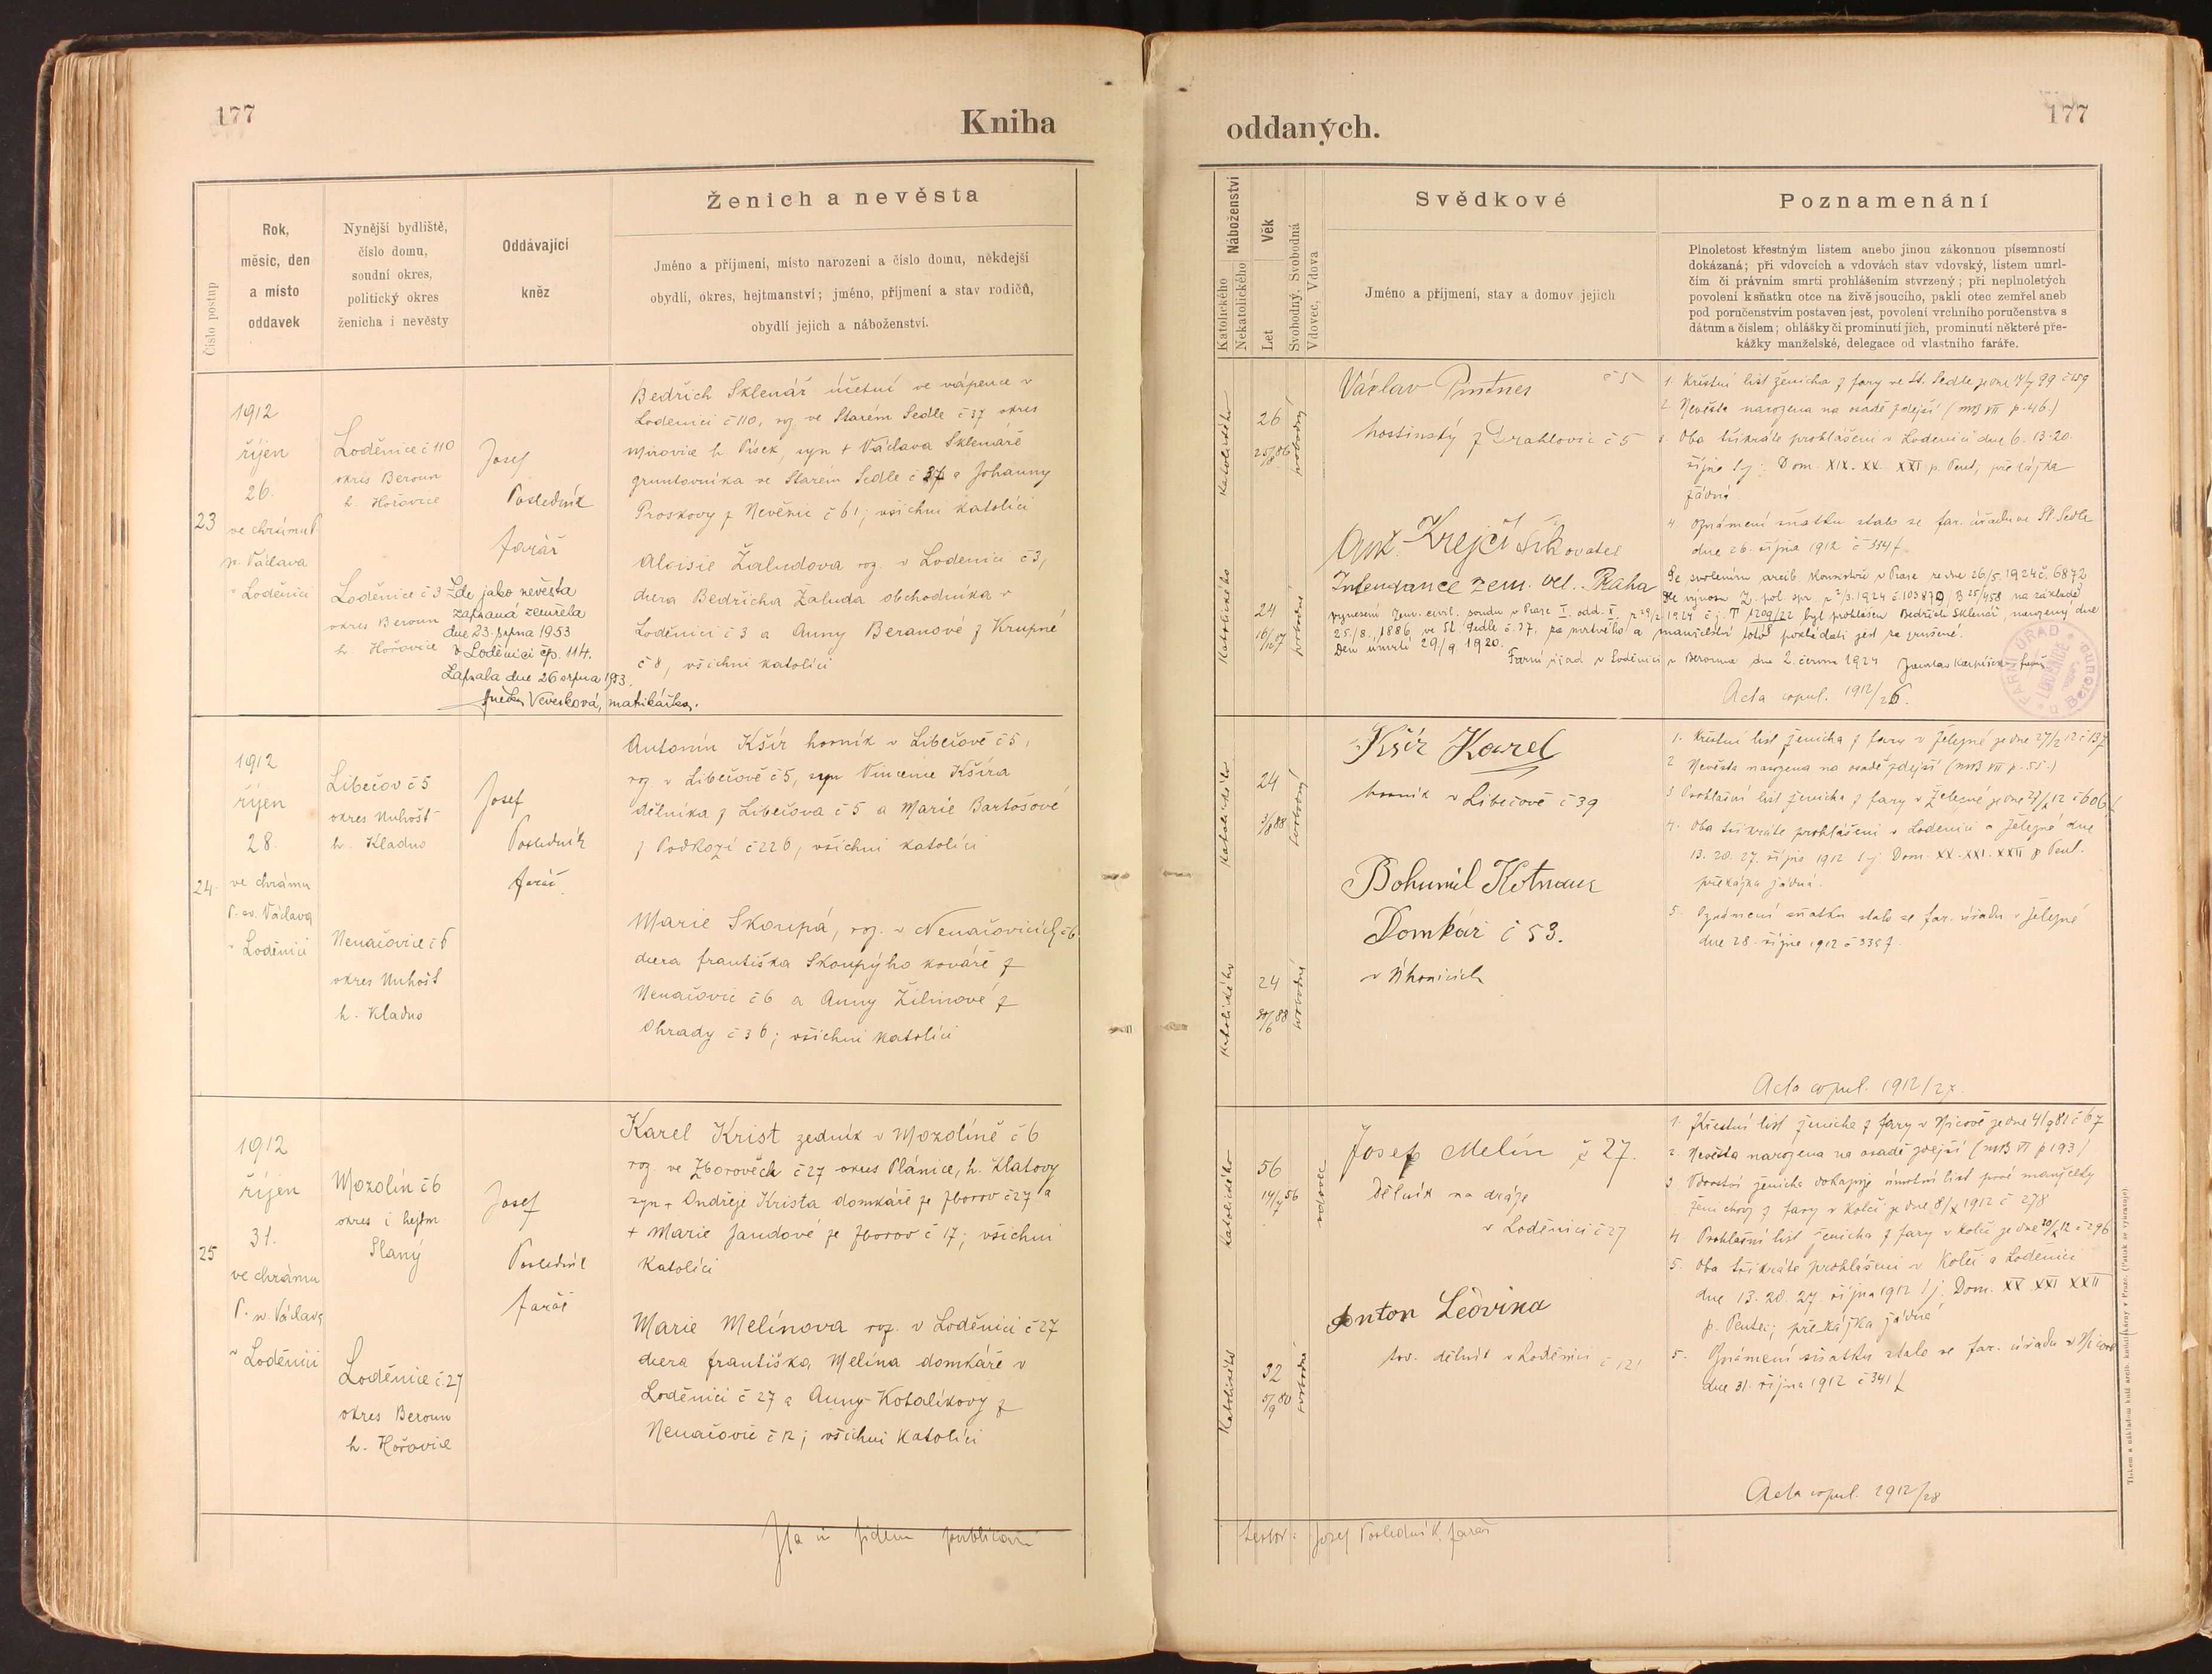 177
Kniha
oddaných.
177
Číslo postup
Rok,
měsíc, den
a místo
oddavek
Nynější bydliště,
číslo domu,
soudní okres,
politický okres
ženicha i nevěsty
Oddávající
kněz
Ženich a nevěsta
Jméno a příjmení, místo narození a číslo domu, někdejší
obydlí, okres, hejtmanství; jméno, příjmení a stav rodičů,
obydlí jejich a náboženství.
Náboženství
Katolického
Nekatolického
Věk
Let
Svobodný, Svobodná
Vdovec, Vdova
Svědkové
Jméno a příjmení, stav a domov jejich
Poznamenání
Plnoletost křestným listem anebo jinou zákonnou písemností
dokázaná; při vdovcích a vdovách stav vdovský, listem umrl-
čím či právním smrti prohlášením stvrzený; při neplnoletých
povolení k sňatku otce na živě jsoucího, pakli otec zemřel aneb
pod poručenstvím postaven jest, povolení vrchního poručenstva s
dátum a číslem; ohlášky či prominutí jich, prominutí některé pře-
kážky manželské, delegace od vlastního faráře.
23
1912
říjen
26.
ve chrámu P.
sv. Václava
v Loděnici
Loděnice č 110
okres Beroun
h. Hořovice
Loděnice č 3
okres Beroun
h. Hořovice
Josef
Posledník
farář
Zde jako nevěsta
zapsaná zemřela
dne 23. srpna 1953
v Loděnici čp. 114.
Zapsala dne 26 srpna 1953.
Veverková, matrikářka.
Bedřich Sklenář účetní ve vápence v
Loděnici č 110, roz. ve Starém Sedle č 37 okres
Mirovice h. Písek, syn + Václava Sklenáře
gruntovníka ve Starém Sedle č 37 a Johanny
Proskovy z Nevěžic č 61; všichni katolíci
Aloisie Žaludova roz. v Loděnici č 3,
dcera Bedřicha Žaluda obchodníka v
Loděnici č 3 a Anny Beranové z Krupné
č 8, všichni katolíci
katolického
26
25/8 86
svobodný
katolického
24
16/12 87
svobodná
Václav
hostinský z Drahlovic č 5
Ant. Krejčí Šikovatel
Intendance zem. vel. Praha
1. Křestní list ženicha z fary ve St. Sedle ze dne
2. Nevěsta narozena na osadě zdejší (MB VII p. 46.)
3. Oba třikráte prohlášeni v Loděnici dne 6. 13. 20.
října t.j. Dom. XIX. XX. XXI p. Pent, překážka
žádná
4. Oznámení sňatku stalo se far. úřadu ve St. Sedle
dne 26. října 1912 č 334 f.
Se svolením arcib. konsistoře v Praze ze dne 26/5. 1924 č. 6872
dle výnosu Z. pol. spr. z 2/3. 1924 č. 103870, B 25/458 na základě
vynesení Zem. civil. soudu v Praze I. odd. X. z 29/2 1924 č j. T 1209/22 byl prohlášen Bedřich Sklenář, narozený dne
25./8., 1886 ve St. Sedle č. 37. za mrtvého a manželství toto pokládati jest za zrušené.
Den úmrtí 29/9. 1920.
Farní úřad v Loděnici u Berouna dne 2. června 1924 Jaroslav farář
Acta copul. 1912/26.
FARNÍ ÚŘAD LODĚNICE u Berouna
24
1912
říjen
28.
ve chrámu
P. sv. Václava
v Loděnici
Libečov č 5
okres Unhošť
h. Kladno
Nenačovice č 6
okres Unhošť
h. Kladno
Josef
Posledník
farář
Antonín Kšír horník v Libečově č 5,
roz v Libečově č 5, syn Vincence Kšíra
dělníka z Libečova č 5 a Marie Bartošové
z Podkozí č 226, všichni katolíci
Marie Skoupá, roz. v Nenačovicích č 6
dcera Františka Skoupýho kováře z
Nenačovic č 6 a Anny Žilinové z
Ohrady č 36; všichni katolíci
katolického
24
3/8 88
svobodný
katolického
24
30/6 88
svobodná
Kšír Karel
horník v Libečově č 39
Bohumil Kotnauer
Domkář č 53.
v Úhonicích
1. Křestní list ženicha z fary v Železné ze dne 27/2 12 č 137
2 Nevěsta narozena na osadě zdejší (MB VII p. 55.)
3 Prohlašní list ženicha z fary v Železné ze dne 27/X 12 č 606 f
4. Oba třikráte prohlášeni v Loděnici a Železné dne
13. 20. 27. října 1912 t.j. Dom. XX. XXI. XXII p Pent.
překážka žádná.
5. Oznámení sňatku stalo se far. úřadu v Železné
dne 28. října 1912 č 335 f.
Acta copul. 1912/27.
25
1912
říjen
31.
ve chrámu
P. sv. Václava
v Loděnici
Mozolín č 6
okres i hejtm
Slaný
Loděnice č 27
okres Beroun
h. Hořovice
Josef
Posledník
farář
Karel Krist zedník v Mozolíně č 6
roz. ve Zborověch č 27 okres Plánice, h. Klatovy
syn + Ondřeje Krista domkáře ze Zborov č 27 a
+ Marie Jandové ze Zborov č 17; všichni
Katolíci
Marie Melínova roz. v Loděnici č 27
dcera Františka Melína domkáře v
Loděnici č 27 a Anny Kotalíkovy z
Nenačovic č 12; všichni katolíci
katolického
56
14/7 56
vdovec
katolického
32
5/9 80
svobodná
Josef Melín č 27.
Dělník na dráze
v Loděnici č 27
Anton Ledvina
tov. dělník v Loděnici č 121
1. Křestní list ženicha z fary v Nicově ze dne 4/9 81 č 67
2. Nevěsta narozena na osadě zdejší (MB VI p 193)
3 Vdovství ženicha dokazuje úmrtní list prvé manželky
ženichovy z fary v Kolči ze dne 8/X 1912 č 278
4. Prohlašní list ženicha z fary v Kolči ze dne 30/X 12 č 296
5. Oba třikráte prohlášeni v Kolči a Loděnici
dne 13. 20. 27. října 1912 t.j. Dom. XX XXI XXII
p. Pentec; překážka žádná
5. Oznámení sňatku stalo se far. úřadu v Nicově
dne 31. října 1912 č 341 f
Acta copul. 1912/28
Ita in fidem publicam
testor: Josef Posledník, farář
Tiskem a nákladem kníž. arcib. knihtiskárny v Praze. (Patisk se vyhrazuje)